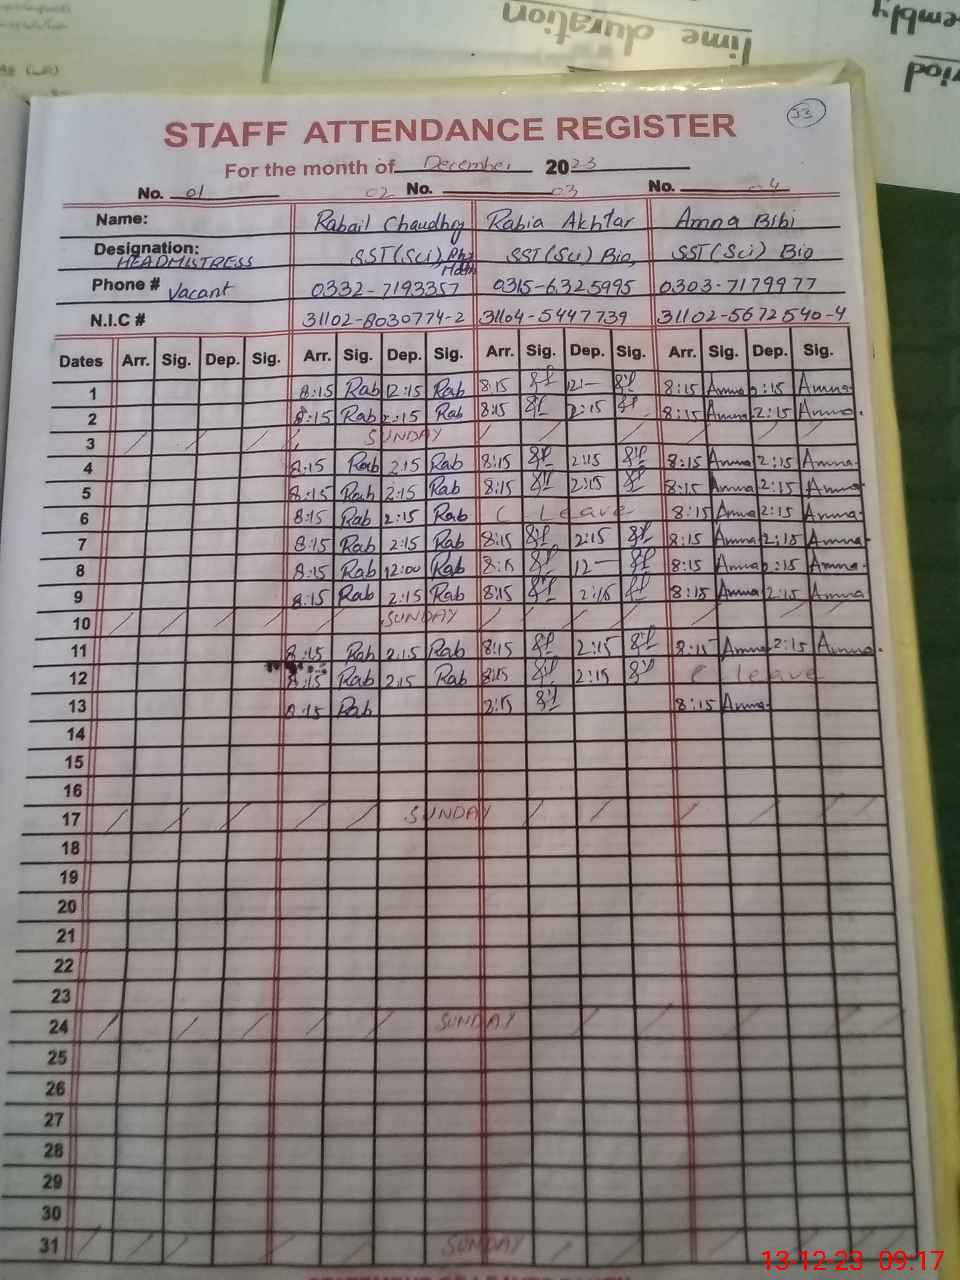 Time duration
33
STAFF ATTENDANCE REGISTER
For the month of December 2023
No. 01 02 No. 03 No. 04
Name: Rabail Chaudhry Rabia Akhtar Amna Bibi
Designation: HEADMISTRESS SST(Sci) Phy Math SST(Sci) Bio, SST(Sci) Bio
Phone # Vacant 0332-7193357 0315-6325995 0303-7179977
N.I.C # 31102-8030774-2 31104-5447739 31102-5672540-4
Dates Arr. Sig. Dep. Sig. Arr. Sig. Dep. Sig. Arr. Sig. Dep. Sig. Arr. Sig. Dep. Sig.
1 8:15 Rab 12:15 Rab 8:15 12:- 8:15 Amna :15 Amna
2 8:15 Rab 2:15 Rab 8:15 2:15 8:15 Amna 2:15 Amna
3 SUNDAY
4 8:15 Rab 2:15 Rab 8:15 2:15 8:15 Amna 2:15 Amna
5 8:15 Rab 2:15 Rab 8:15 2:15 8:15 Amna 2:15 Amna
6 8:15 Rab 2:15 Rab C. Leave 8:15 Amna 2:15 Amna
7 8:15 Rab 2:15 Rab 8:15 2:15 8:15 Amna 2:15 Amna
8 8:15 Rab 12:00 Rab 8:15 12- 8:15 Amna :15 Amna
9 8:15 Rab 2:15 Rab 8:15 2:15 8:15 Amna 2:15 Amna
10 SUNDAY
11 8:15 Rab 2:15 Rab 8:15 2:15 8:15 Amna 2:15 Amna
12 8:15 Rab 2:15 Rab 8:15 2:15 C leave
13 8:15 Rab 2:15 8:15 Amna
14
15
16
17 SUNDAY
18
19
20
21
22
23
24 SUNDAY
25
26
27
28
29
30
31 SUNDAY
13-12-23 09:17